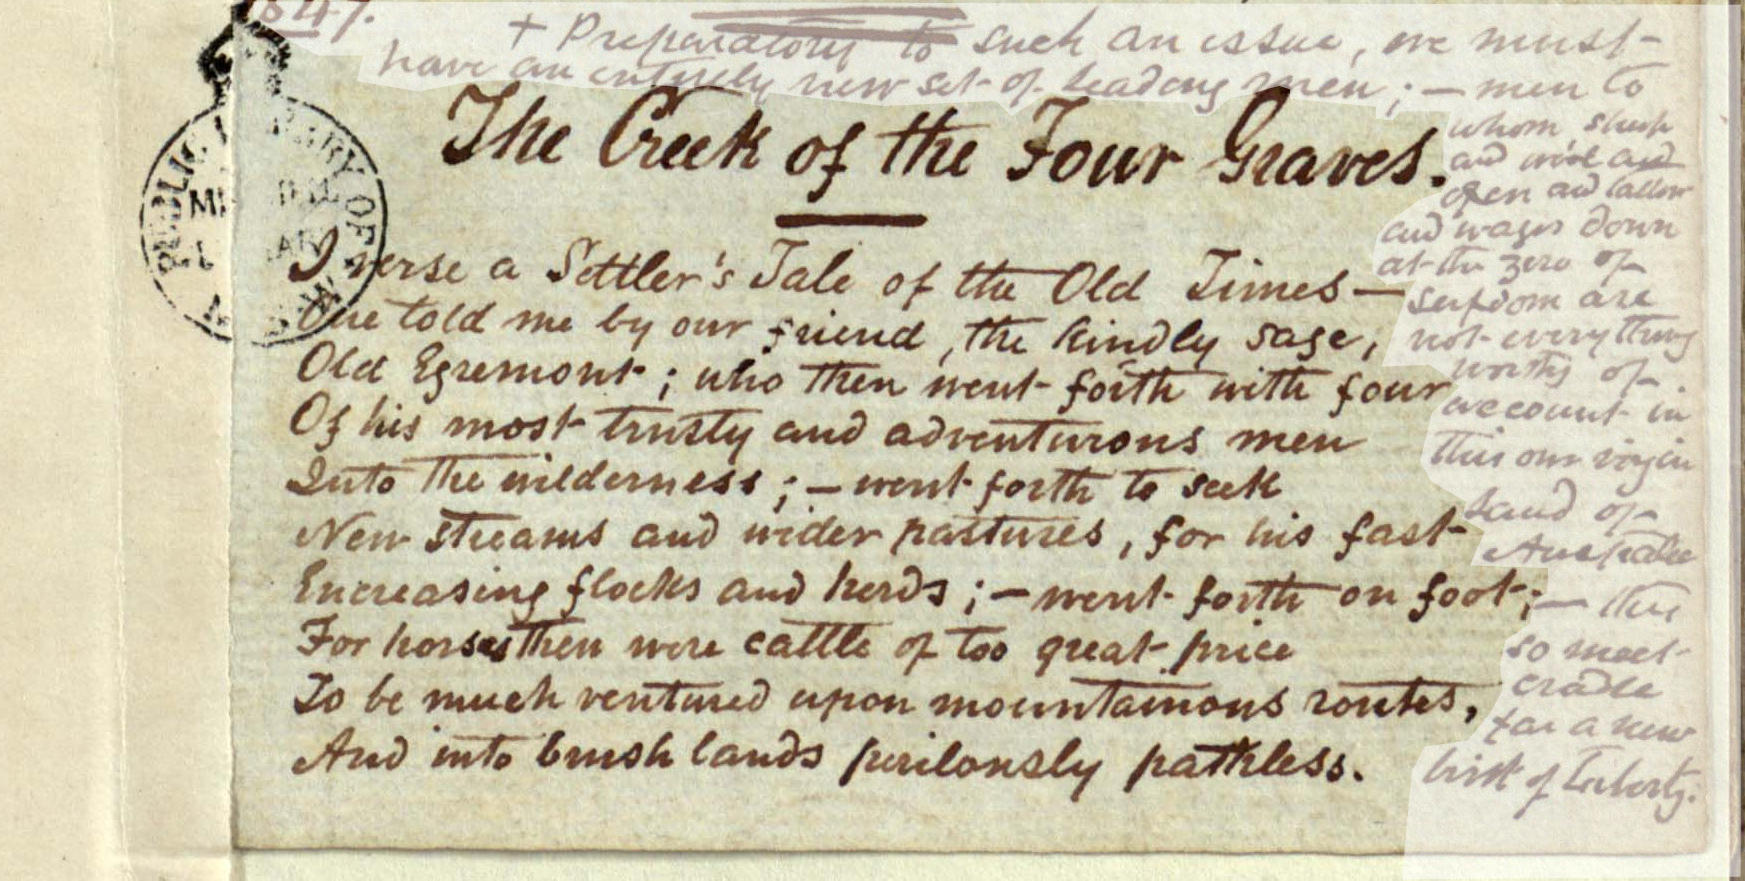 1847.
+ Preparatory to such an issue, we must
have an entirely new set of leading men; — men to
whom sheep
and wool and
open and tallow
and wages down
at the zero of
serfdom are
not everything
worthy of
account in
this our virgin
land of
Australia
— this
so meet
cradle
for a new
birth of Liberty.
The Creek of the Four Graves.
I verse a Settler's Tale of the Old Times —
One told me by our friend, the kindly sage,
Old Egremont; who then went forth with four
Of his most trusty and adventurous men
Into the wilderness; — went forth to seek
New streams and wider pastures, for his fast
Encreasing flocks and herds; — went forth on foot;
For horses then were cattle of too great price
To be much ventured upon mountainous routes,
And into brush lands perilously pathless.
PUBLIC LIBRARY OF